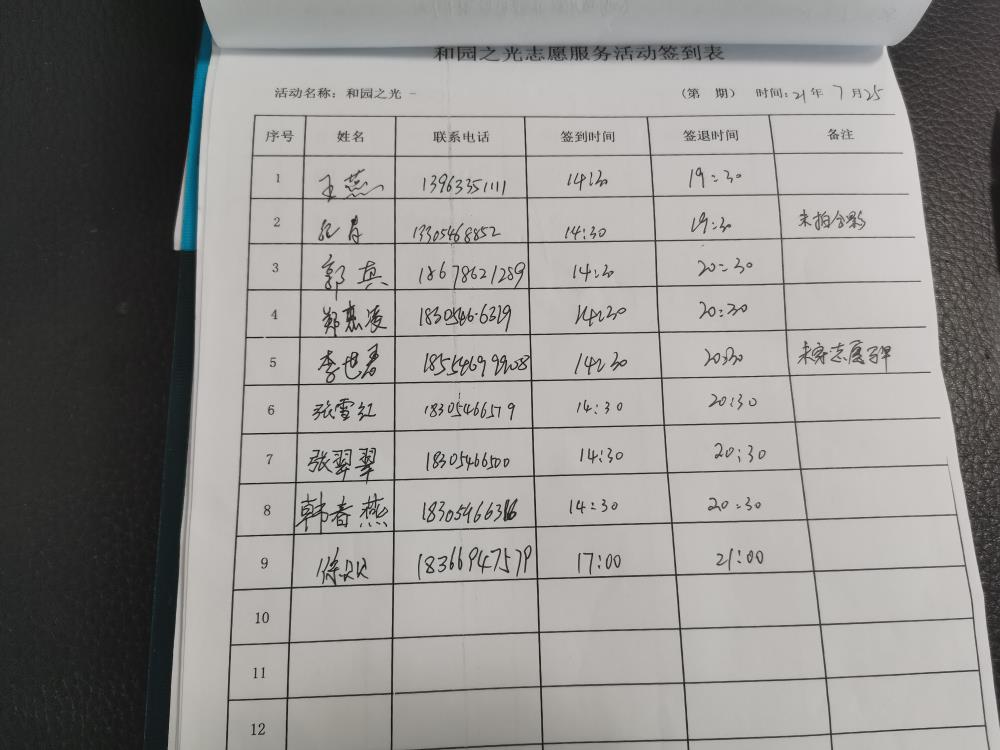 和园之光志愿服务活动签到表
活动名称：和园之光 - （第 期） 时间：21年 7月25
序号 姓名 联系电话 签到时间 签退时间 备注
1 王燕 13963351111 14:30 19:30
2 纪青 13305468852 14:30 19:30 未拍合影
3 郭真 18678621289 14:30 20:30
4 郑惠凌 18305466319 14:30 20:30
5 李世君 18554699208 14:30 20:30 未穿志愿
6 张雪红 18305466519 14:30 20:30
7 张翠翠 18305466500 14:30 20:30
8 韩春燕 18305466316 14:30 20:30
9 徐 18366947579 17:00 21:00
10
11
12